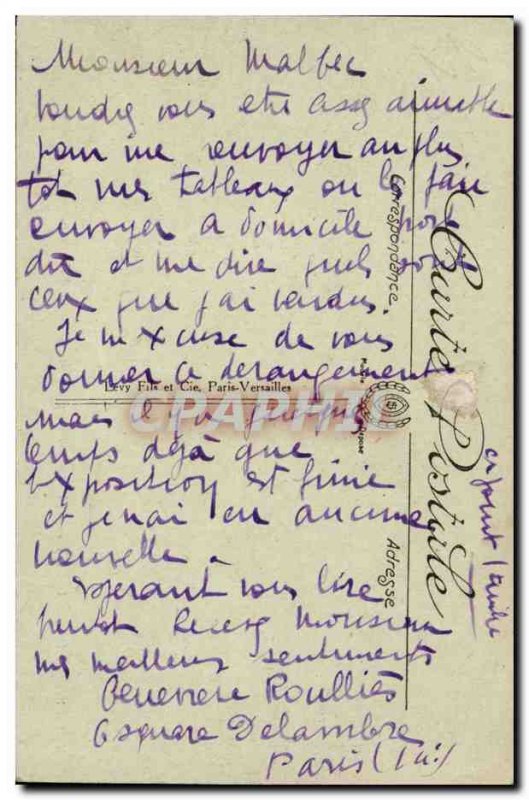 Monsieur Malbec
voudriez vous etre assez aimable
pour me envoyer au plus
tot mes tableaux ou le faire
envoyer a domicile
dit et me dire quels sont
ceux que j'ai vendus.
Je m'excuse de vous
donner ce derangement
mais il y a
temps déjà que
l'exposition est finie
et je n'ai eu aucune
nouvelle.
esperant vous lire
Recevez Monsieur
mes meilleurs sentiments
Genevieve Roulliès
6 square Delambre
Paris (14e)
ci joint timbre
Carte Postale
Correspondance.
Adresse
Lévy Fils et Cie, Paris-Versailles
CPAPHIL